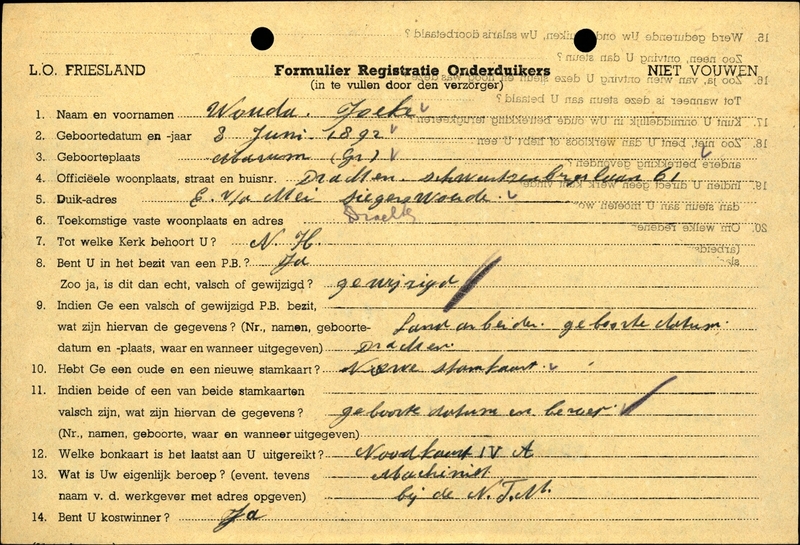 L.O. FRIESLAND Formulier Registratie Onderduikers NIET VOUWEN
(in te vullen door den verzorger)
1. Naam en voornamen Wouda. Joeke
2. Geboortedatum en -jaar 3 Juni 1892
3. Geboorteplaats Marum (Gr)
4. Officiëele woonplaats, straat en huisnr. Drachten. 61
5. Duik-adres E. v/d Mei Siegerswoude.
6. Toekomstige vaste woonplaats en adres Drachten
7. Tot welke Kerk behoort U? N. H.
8. Bent U in het bezit van een P.B.? Ja
Zoo ja, is dit dan echt, valsch of gewijzigd? gewijzigd
9. Indien Ge een valsch of gewijzigd P.B. bezit,
wat zijn hiervan de gegevens? (Nr., namen, geboorte- Landarbeider. geboorte datum.
datum en -plaats, waar en wanneer uitgegeven) Drachten.
10. Hebt Ge een oude en een nieuwe stamkaart? Nieuwe stamkaart.
11. Indien beide of een van beide stamkaarten
valsch zijn, wat zijn hiervan de gegevens? geboorte datum en beroep.
(Nr., namen, geboorte, waar en wanneer uitgegeven)
12. Welke bonkaart is het laatst aan U uitgereikt? Noodkaart IV A
13. Wat is Uw eigenlijk beroep? (event. tevens Machinist
naam v. d. werkgever met adres opgeven) bij de N.T.M.
14. Bent U kostwinner? Ja
15. Werd gedurende Uw onderduiken, Uw salaris doorbetaald?
Zoo neen, ontving U dan steun?
16. Zoo ja, van wien ontving U deze steun en hoog was deze
Tot wanneer is deze steun aan U betaald?
17. Kunt U onmiddellijk in Uw oude betrekking terugkeeren
18. Zoo niet, bent U dan werkloos of hebt U een
andere betrekking gevonden?
19. Indien U direct geen werk kunt vinden
dan steun aan U moeten wo
20. Om welke redenen
(arbeids